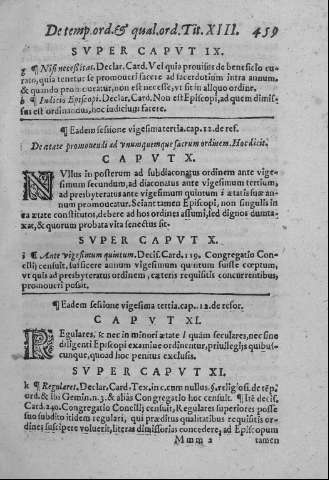 De temp. ord. & qual. ord. Tit. XIII. 459
SVPER CAPVT IX.
g ¶ Nisi necessitas. Declar. Card. Vel quia prouisus de beneficio cu-
rato, quia tenetur se promoueri facere ad sacerdotium intra annum,
& quando promoueatur, non est necesse, vt sit in aliquo ordine.
h ¶ Iudicio Episcopi. Declar. Card. Non est Episcopi, ad quem dimis-
sus est ordinandus, hoc iudicium facere.
¶ Eadem sessione vigesimatertia. cap. 12. de ref.
De ætate promouendi ad vnumquemque sacrum ordinem. Hoc dicit.
CAPVT X.
NVllus in posterum ad subdiaconatus ordinem ante vige-
simum secundum, ad diaconatus ante vigesimum tertium,
ad presbyteratus ante vigesimum quintum i ætatis suæ an-
num promoueatur. Sciant tamen Episcopi, non singulis in
ea ætate constitutos, debere ad hos ordines assumi, sed dignos dunta-
xat, & quorum probata vita senectus sit.
SVPER CAPVT X.
i ¶ Ante vigesimum quintum. Decis. Card. 119. Congregatio Con-
cilij censuit, sufficere annum vigesimum quintum fuisse cœptum,
vt quis ad presbyteratus ordinem, cæteris requisitis concurrentibus,
promoueri possit.
¶ Eadem sessione vigesima tertia. cap. 12. de refor.
CAPVT XI.
REgulares, & nec in minori ætate l quàm seculares, nec sine
diligenti Episcopi examine ordinentur, priuilegijs quibus-
cunque, quoad hoc penitus exclusis.
SVPER CAPVT XI.
k ¶ Regulares. Declar. Card. Tex. in c. cum nullus. §. religiosi. de tẽp.
ord. & ibi Gemin. n. 3. & aliàs Congregatio hoc censuit. ¶ Itẽ decis.
Card. 240. Congregatio Concilij censuit, Regulares superiores posse
suo subdito itidem regulari, qui præditus qualitatibus requisitis or-
dines suscipere voluerit, literas dimissorias concedere, ad Episcopum
Mmm 2 tamen